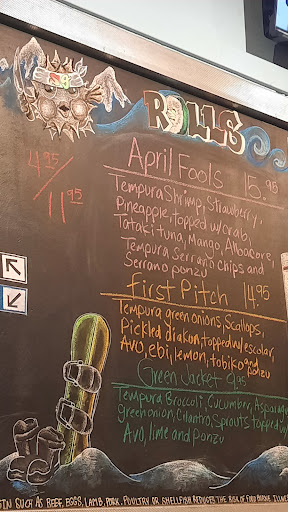 ROLLS
4.95
11.95
April Fools 15.95
Tempura Shrimp, Strawberry,
Pineapple, topped w/crab,
Tataki tuna, Mango, Albacore,
Tempura Serrano chips and
Serrano ponzu
First Pitch 14.95
Tempura green onions, Scallops,
Pickled diakon, topped w/escolar,
Avo, ebi, lemon, tobiko and
ponzu
Green Jacket 9.95
Tempura Broccoli, Cucumber, Asparagu
green onion, Cilantro, Sprouts topped w/
Avo, lime and ponzu
SUCH AS BEEF, EGGS, LAMB, PORK, POULTRY OR SHELLFISH REDUCES THE RISK OF FOOD BORNE ILLNE